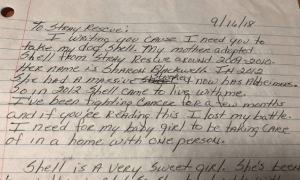 9/16/18
To Stray Rescue:
I writing you cause I need you to
take my dog Shell. My mother adopted
Shell from Stray Rescue around 2009-2010.
Her name is Sharon Blackwell. IN 2012
She had A massive now has Alzheimers.
So in 2012 Shell came to live with me.
I've been fighting cancer for a few months
and if you're reading this I lost my battle.
I need for my baby girl to be taking care
of in a home with one person.
Shell is A very sweet girl. She's been